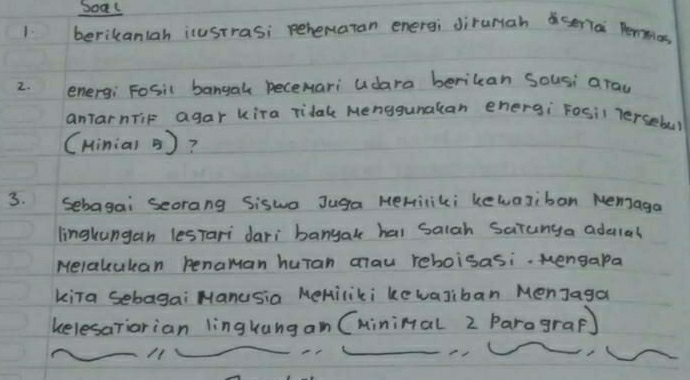 Soal
1. berikanlah ilustrasi pehematan energi dirumah disertai
2. energi Fosil banyak pecemari udara berikan Sousi atau
antarntif agar kita tidak menggunakan energi Fosil tersebut
(Minial 5) ?
3. Sebagai Seorang Siswa Juga memiliki kewajiban menjaga
lingkungan lestari dari banyak hal Salah Satunya adalah
Melakukan penaman hutan atau reboisasi. Mengapa
kita Sebagai Manusia Memiliki kewajiban Menjaga
kelesatarian lingkungan (Minimal 2 Paragraf)